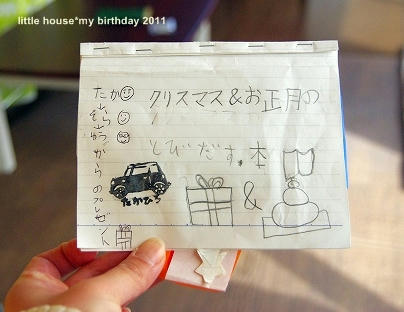 little house*my birthday 2011
クリスマス&お正月の
とびだす。本
&
たかひろ
からのプレゼント